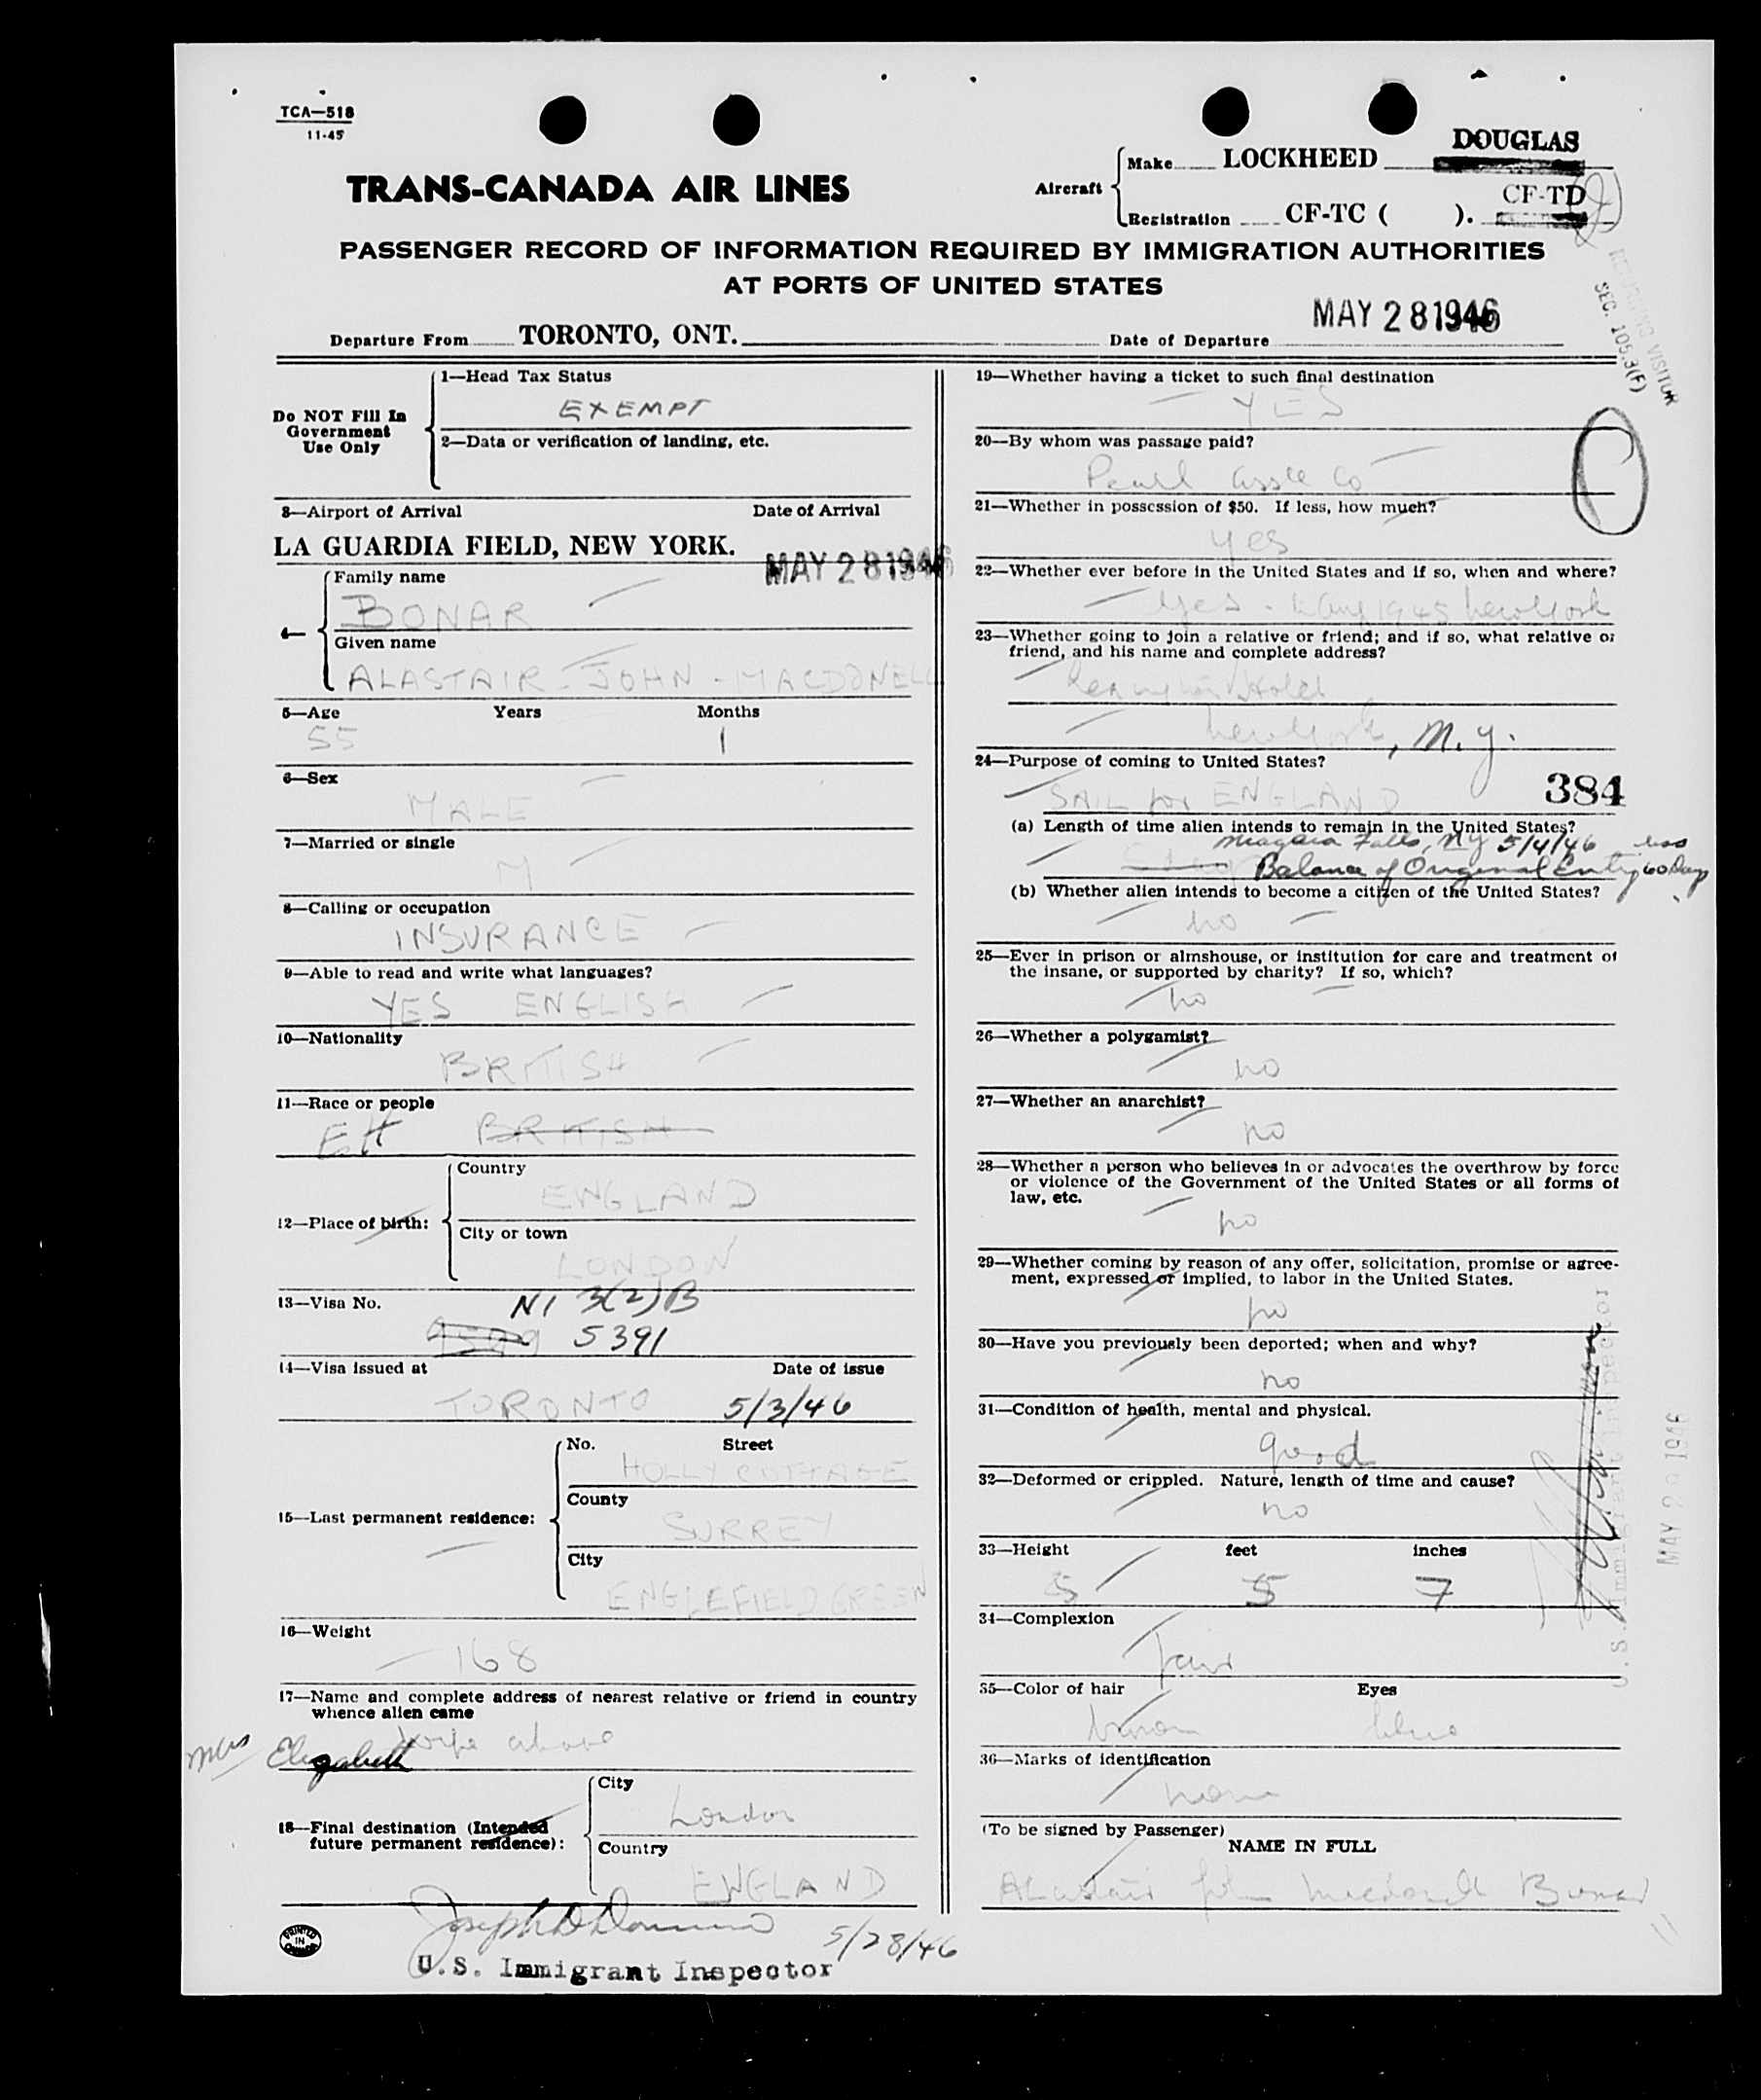 TCA—518
11-45
TRANS-CANADA AIR LINES
Aircraft
Make LOCKHEED DOUGLAS
Registration CF-TC ( ). CF-TD
PASSENGER RECORD OF INFORMATION REQUIRED BY IMMIGRATION AUTHORITIES
AT PORTS OF UNITED STATES
Departure From TORONTO, ONT. Date of Departure MAY 28 1946
VISITOR
SEC. 105.3(F)
Do NOT Fill In
Government
Use Only
1—Head Tax Status
EXEMPT
2—Data or verification of landing, etc.
3—Airport of Arrival Date of Arrival
LA GUARDIA FIELD, NEW YORK. MAY 28 1946
4—
Family name
BONAR
Given name
ALASTAIR - JOHN - MACDONELL
5—Age Years Months
55 1
6—Sex
MALE
7—Married or single
M
8—Calling or occupation
INSURANCE
9—Able to read and write what languages?
YES ENGLISH
10—Nationality
BRITISH
11—Race or people
BRITISH
12—Place of birth:
Country
ENGLAND
City or town
LONDON
13—Visa No. NI 3(2)B
5391
14—Visa issued at Date of issue
TORONTO 5/3/46
15—Last permanent residence:
No. Street
HOLLY COTTAGE
County
SURREY
City
ENGLEFIELD GREEN
16—Weight
168
17—Name and complete address of nearest relative or friend in country
whence alien came
Mrs Elizabeth wife above
18—Final destination (Intended
future permanent residence):
City
London
Country
ENGLAND
5/28/46
U.S. Immigrant Inspector
PRINTED IN CANADA
19—Whether having a ticket to such final destination
YES
20—By whom was passage paid?
Pearl Assce Co
21—Whether in possession of $50. If less, how much?
yes
22—Whether ever before in the United States and if so, when and where?
yes - 1945 New York
23—Whether going to join a relative or friend; and if so, what relative or
friend, and his name and complete address?
Lexington Hotel
New York, N.Y.
24—Purpose of coming to United States?
SAIL for ENGLAND 384
(a) Length of time alien intends to remain in the United States?
Niagara Falls, NY 5/4/46 less
Balance of Original Entry 60 Days
(b) Whether alien intends to become a citizen of the United States?
no
25—Ever in prison or almshouse, or institution for care and treatment of
the insane, or supported by charity? If so, which?
no
26—Whether a polygamist?
no
27—Whether an anarchist?
no
28—Whether a person who believes in or advocates the overthrow by force
or violence of the Government of the United States or all forms of
law, etc.
no
29—Whether coming by reason of any offer, solicitation, promise or agree-
ment, expressed or implied, to labor in the United States.
no
30—Have you previously been deported; when and why?
no
31—Condition of health, mental and physical.
good
32—Deformed or crippled. Nature, length of time and cause?
no
33—Height feet inches
5 5 7
34—Complexion
Fair
35—Color of hair Eyes
brown blue
36—Marks of identification
none
(To be signed by Passenger)
NAME IN FULL
Alastair John Macdonell Bonar
U.S. Immigrant Inspector